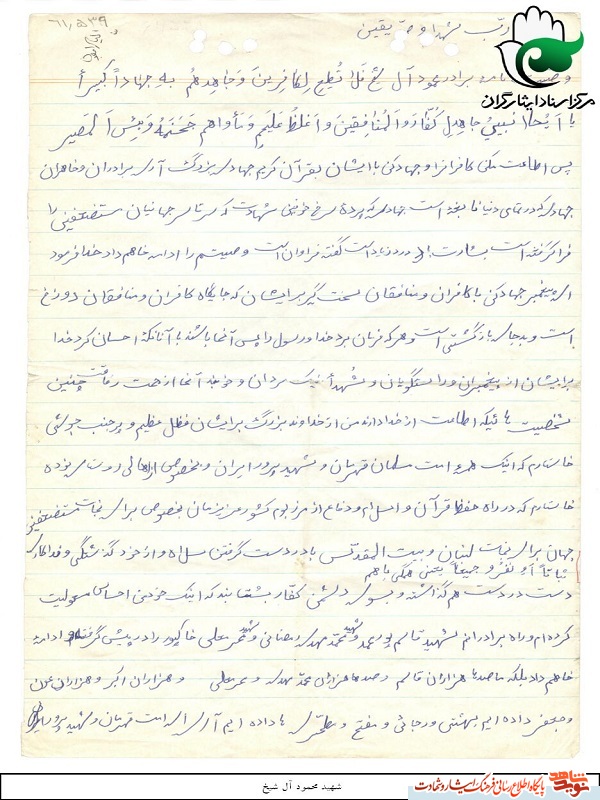 ۶۱٫۵۳۹
رب شهدا و صدیقین
مرکز اسناد ایثارگران
برادر محمود آل شیخ فلا تطع الکافرین وجاهدهم به جهاداً کبیراً
یا ایها النبی جاهد الکفار والمنافقین واغلظ علیهم ومأواهم جهنم وبئس المصیر
پس اطاعت مکن کافرانرا و جهاد کن با ایشان بقرآن کریم جهادی بزرگ آری برادران و خواهران
جهادی که در تمامی دنیا است جهادی که پرده سرخ خونین شهادت که سرتاسر جهانیان مستضعفین را
فراگرفته است بشارت گفته فراوان است وصیتم را ادامه خاهم داد خدا فرمود
ای پیغمبر جهاد کن با کافران و منافقان سخت گیر بر ایشان که جایگاه کافران و منافقان دوزخ
است و بد جای بازگشتی است و هر که فرمان برد خدا و رسول را پس آنها باشند با آنانکه احسان کرد خدا
بر ایشان از پیغمبران و راستگویان و شهدا نیک مردان و آنها از جهت رفاقت چنین
شخصیت هائیکه اطاعت از خدا دارند من از خداوند بزرگ بر ایشان فضل عظیم و
خاستارم که اینک همه امت مسلمان قهرمان و شهید پرور ایران و بخصوص از اهالی
خاستارم که در راه حفظ قرآن و اسلام و دفاع از مرز بوم کشور عزیزمان بخصوص برای نجات مستضعفین
جهان برای نجات لبنان و بیت المقدس با در دست گرفتن سلاح و از خود گذشتگی و فداکاری
ثباتاً اَو انفرو جمیعاً یعنی همگی با هم
دست در دست هم گذاشته و بسوی دشمن کفار بشتابند که اینک خودمن احساس مسئولیت
کرده ام و راه برادرانم شهید قاسم پور محمد و شهید محمد مهدی رمضانی و شهید عمرعلی خاکپور را در پیش گرفته ام و ادامه
خاهم داد بلکه ما صدها هزاران قاسم و صدها هزاران محمد مهدی و عمرعلی و هزاران اکبر و هزاران عون
و جعفر داده ایم بهشتی و رجائی و مفتح و مطهری ها داده ایم آری ای امت قهرمان و شهید پرور
شهید محمود آل شیخ
نوید شاهد
پایگاه اطلاع رسانی فرهنگ ایثار و شهادت